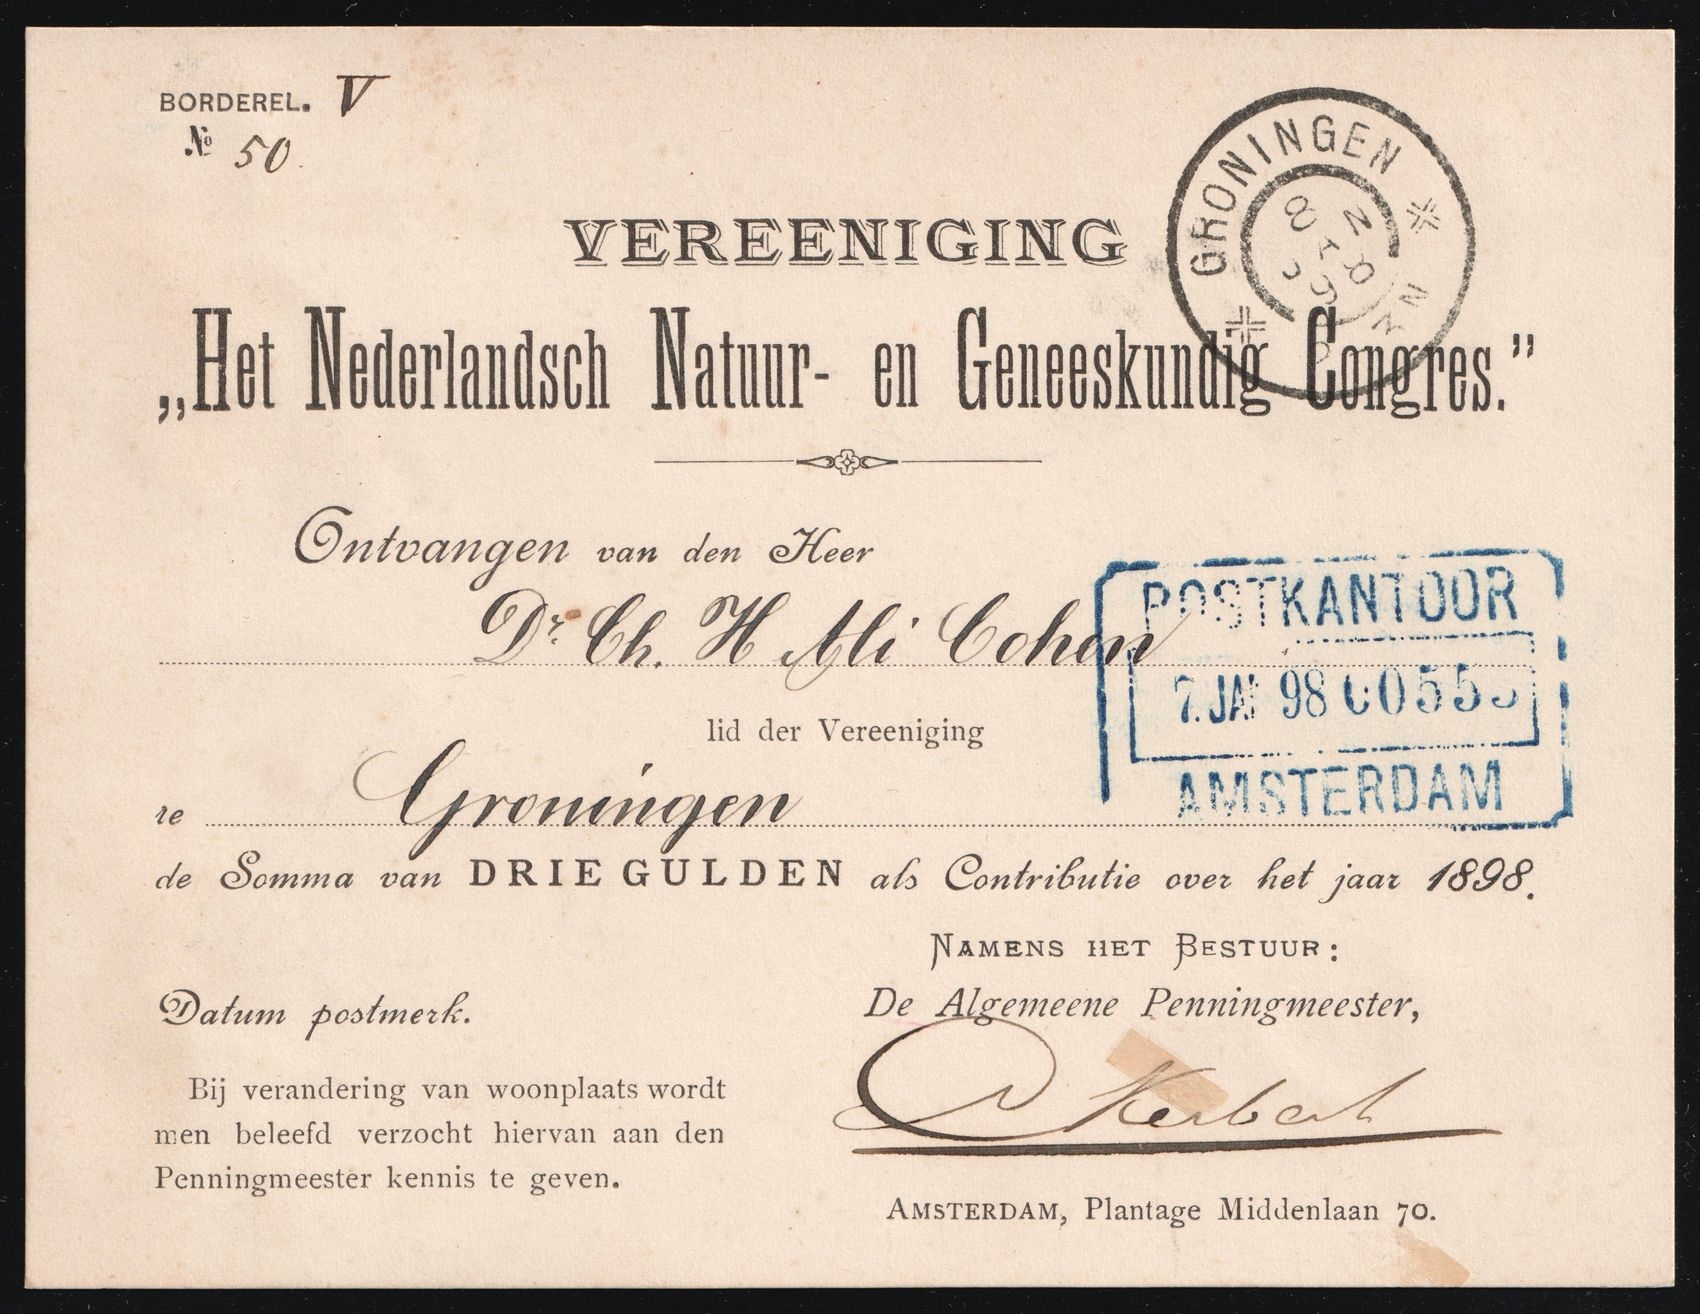 BORDEREL. V
№ 50.
GRONINGEN
VEREENIGING
„Het Nederlandsch Natuur- en Geneeskundig Congres.”
Ontvangen van den Heer
Dr. Ch. H Ali Cohen
POSTKANTOOR
7. JAN 98
AMSTERDAM
lid der Vereeniging
te Groningen
de Somma van DRIE GULDEN als Contributie over het jaar 1898.
NAMENS HET BESTUUR:
De Algemeene Penningmeester,
Datum postmerk.
Kerbert
Bij verandering van woonplaats wordt
men beleefd verzocht hiervan aan den
Penningmeester kennis te geven.
AMSTERDAM, Plantage Middenlaan 70.